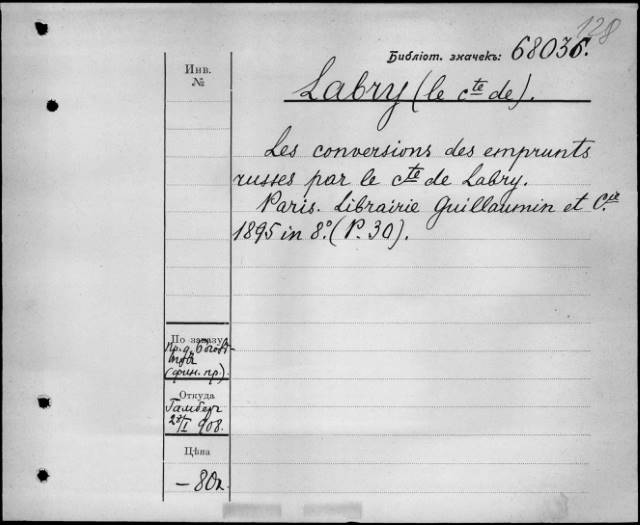 128
Библіот. значекъ: 68036.
Инв.
№
Labry (le cte de).
Les conversions des emprunts
russes par le cte de Labry.
Paris. Librairie Guillaumin et Cie
1895 in 8º. (P. 30).
По заказу
(фин. пр.).
Откуда
Гамбег
23/I 908.
Цѣна
— 80к.